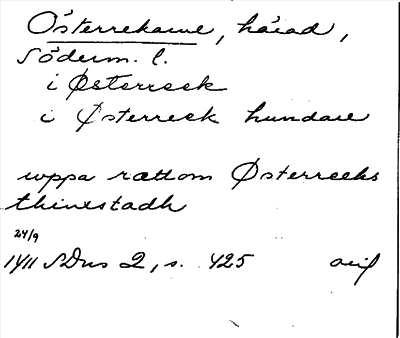 Österrekarne, härad,
Söderm. l.
i Østerreek
i Østerreek hundare
uppa rættom Østerreeks
thinestadh
24/9
1411 SDns 2, s. 425 avif